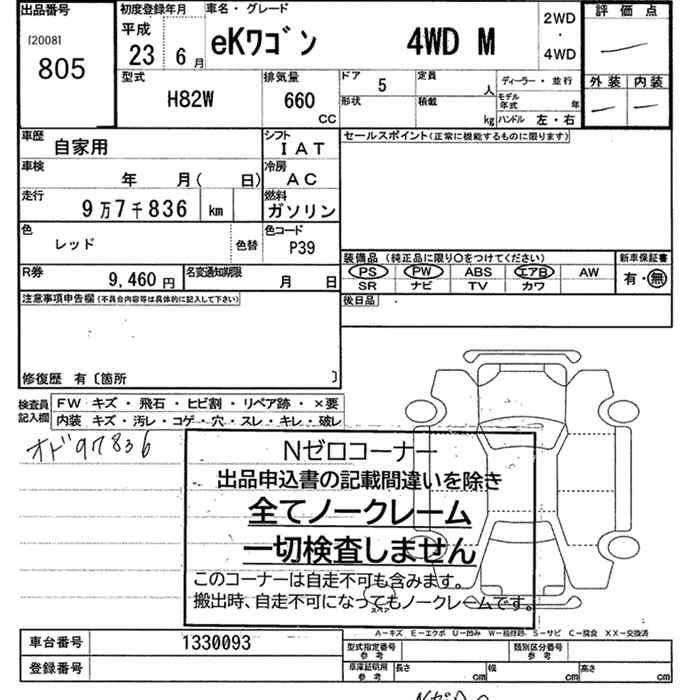 出品番号
[2008]
805
初度登録年月
平成
23 6月
車名・グレード
eKワゴン 4WD M
2WD
・
4WD
評価点
外装 内装
型式
H82W
排気量
660
cc
ドア 5
定員 人
形状
積載 kg
ディーラー・並行
モデル年式 年
ハンドル 左・右
車歴 自家用
シフト IAT
車検 年 月( 日)
冷房 AC
走行 9万7千836 km
燃料 ガソリン
色 レッド 色替
色コード P39
R券 9,460円
名変通知期限 月 日
セールスポイント(正常に機能するものに限ります)
装備品 (純正品に限り〇をつけてください)
PS PW ABS エアB AW
SR ナビ TV カワ
新車保証書
有・無
後日品
注意事項申告欄(不具合内容等は具体的に記入して下さい)
修復歴 有〔箇所 〕
検査員記入欄
FW キズ・飛石・ヒビ割・リペア跡・×要
内装 キズ・汚レ・コゲ・穴・スレ・キレ・破レ
オド97836
Nゼロコーナー
出品申込書の記載間違いを除き
全てノークレーム
一切検査しません
このコーナーは自走不可も含みます。
搬出時、自走不可になってもノークレームです。
スペア
A－キズ E－エクボ U－凹み W－補修跡 S－サビ C－腐食 XX－交換済
車台番号 1330093
登録番号
型式指定番号 参考
類別区分番号 参考
車庫証明用 参考
長さ cm 幅 cm 高さ cm